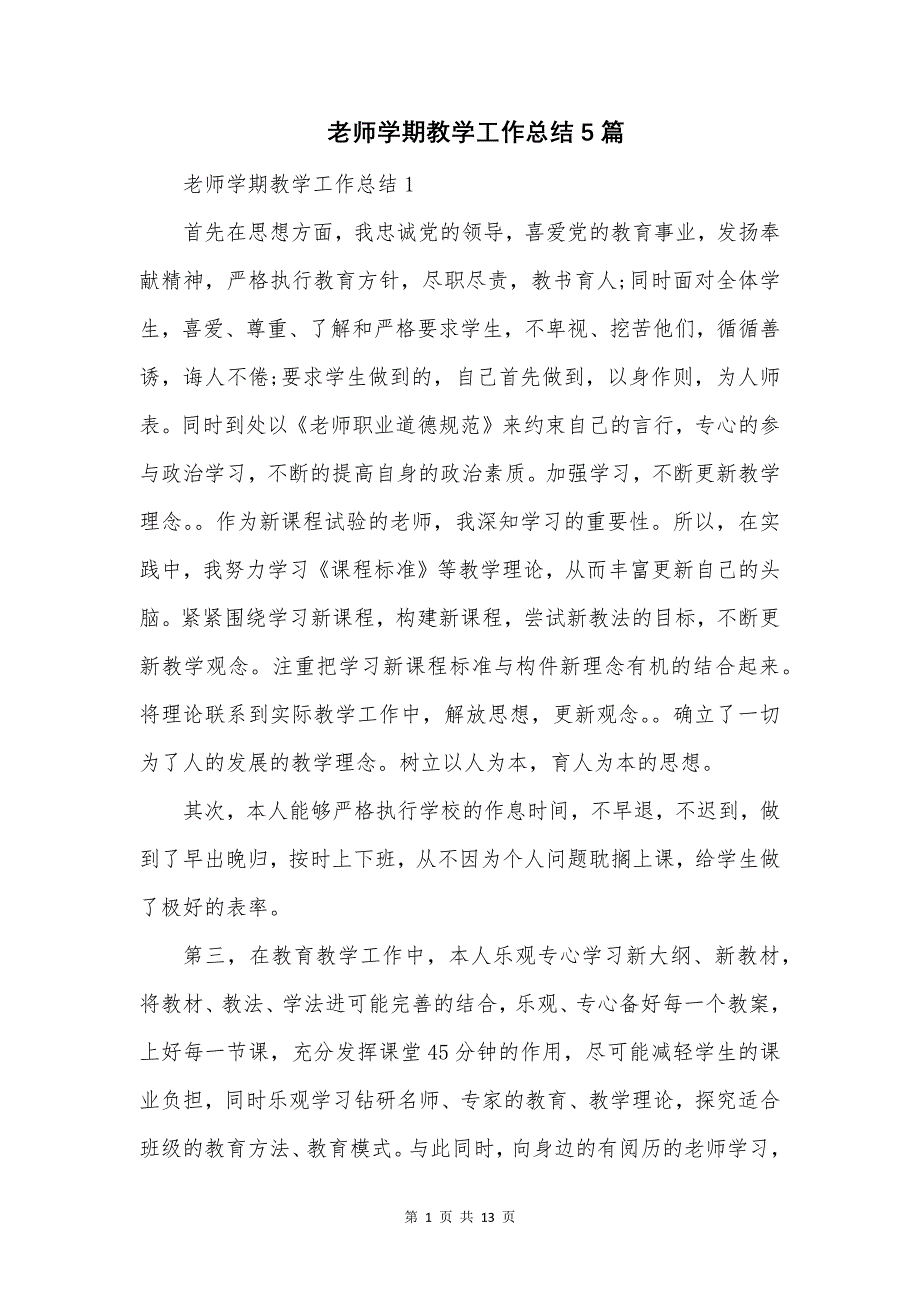 老师学期教学工作总结 5 篇
老师学期教学工作总结 1
首先在思想方面，我忠诚党的领导，喜爱党的教育事业，发扬奉
献精神，严格执行教育方针，尽职尽责，教书育人;同时面对全体学
生，喜爱、尊重、了解和严格要求学生，不卑视、挖苦他们，循循善
诱，诲人不倦;要求学生做到的，自己首先做到，以身作则，为人师
表。同时到处以《老师职业道德规范》来约束自己的言行，专心的参
与政治学习，不断的提高自身的政治素质。加强学习，不断更新教学
理念。。作为新课程试验的老师，我深知学习的重要性。所以，在实
践中，我努力学习《课程标准》等教学理论，从而丰富更新自己的头
脑。紧紧围绕学习新课程，构建新课程，尝试新教法的目标，不断更
新教学观念。注重把学习新课程标准与构件新理念有机的结合起来。
将理论联系到实际教学工作中，解放思想，更新观念。。确立了一切
为了人的发展的教学理念。树立以人为本，育人为本的思想。
其次，本人能够严格执行学校的作息时间，不早退，不迟到，做
到了早出晚归，按时上下班，从不因为个人问题耽搁上课，给学生做
了极好的表率。
第三，在教育教学工作中，本人乐观专心学习新大纲、新教材，
将教材、教法、学法进可能完善的结合，乐观、专心备好每一个教案，
上好每一节课，充分发挥课堂 45 分钟的作用，尽可能减轻学生的课
业负担，同时乐观学习钻研名师、专家的教育、教学理论，探究适合
班级的教育方法、教育模式。与此同时，向身边的有阅历的老师学习，
第 1 页 共 13 页